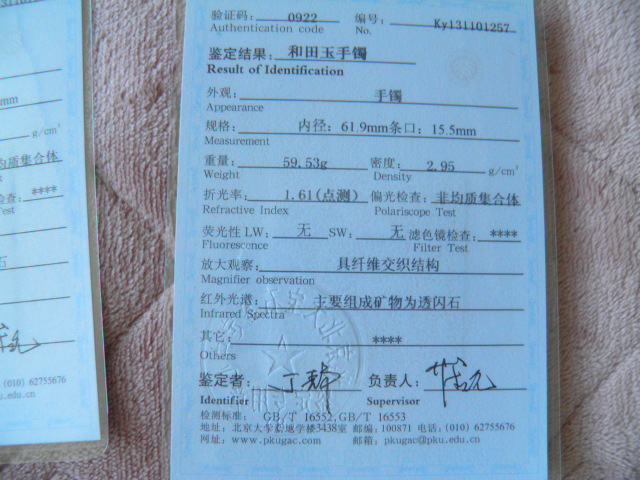 mm
g/cm³
均质集合体
检查: ****
Test
石
(010) 62755676
ku.edu.cn
验证码: 0922 编号: Ky131101257
Authentication code No.
鉴定结果: 和田玉手镯
Result of Identification
外观: 手镯
Appearance
规格: 内径: 61.9mm条口: 15.5mm
Measurement
重量: 59.53g 密度: 2.95 g/cm³
Weight Density
折光率: 1.61(点测) 偏光检查: 非均质集合体
Refractive Index Polariscope Test
荧光性 LW: 无 SW: 无 滤色镜检查: ****
Fluorescence Filter Test
放大观察: 具纤维交织结构
Magnifier observation
红外光谱: 主要组成矿物为透闪石
Infrared Spectra
其它: ****
Others
鉴定者: 负责人:
Identifier Supervisor
检测标准: GB/T 16552,GB/T 16553
地址: 北京大学逸夫地学楼3438室 邮编: 100871 电话: (010) 62755676
网址: www.pkugac.com 邮箱: pkugac@pku.edu.cn